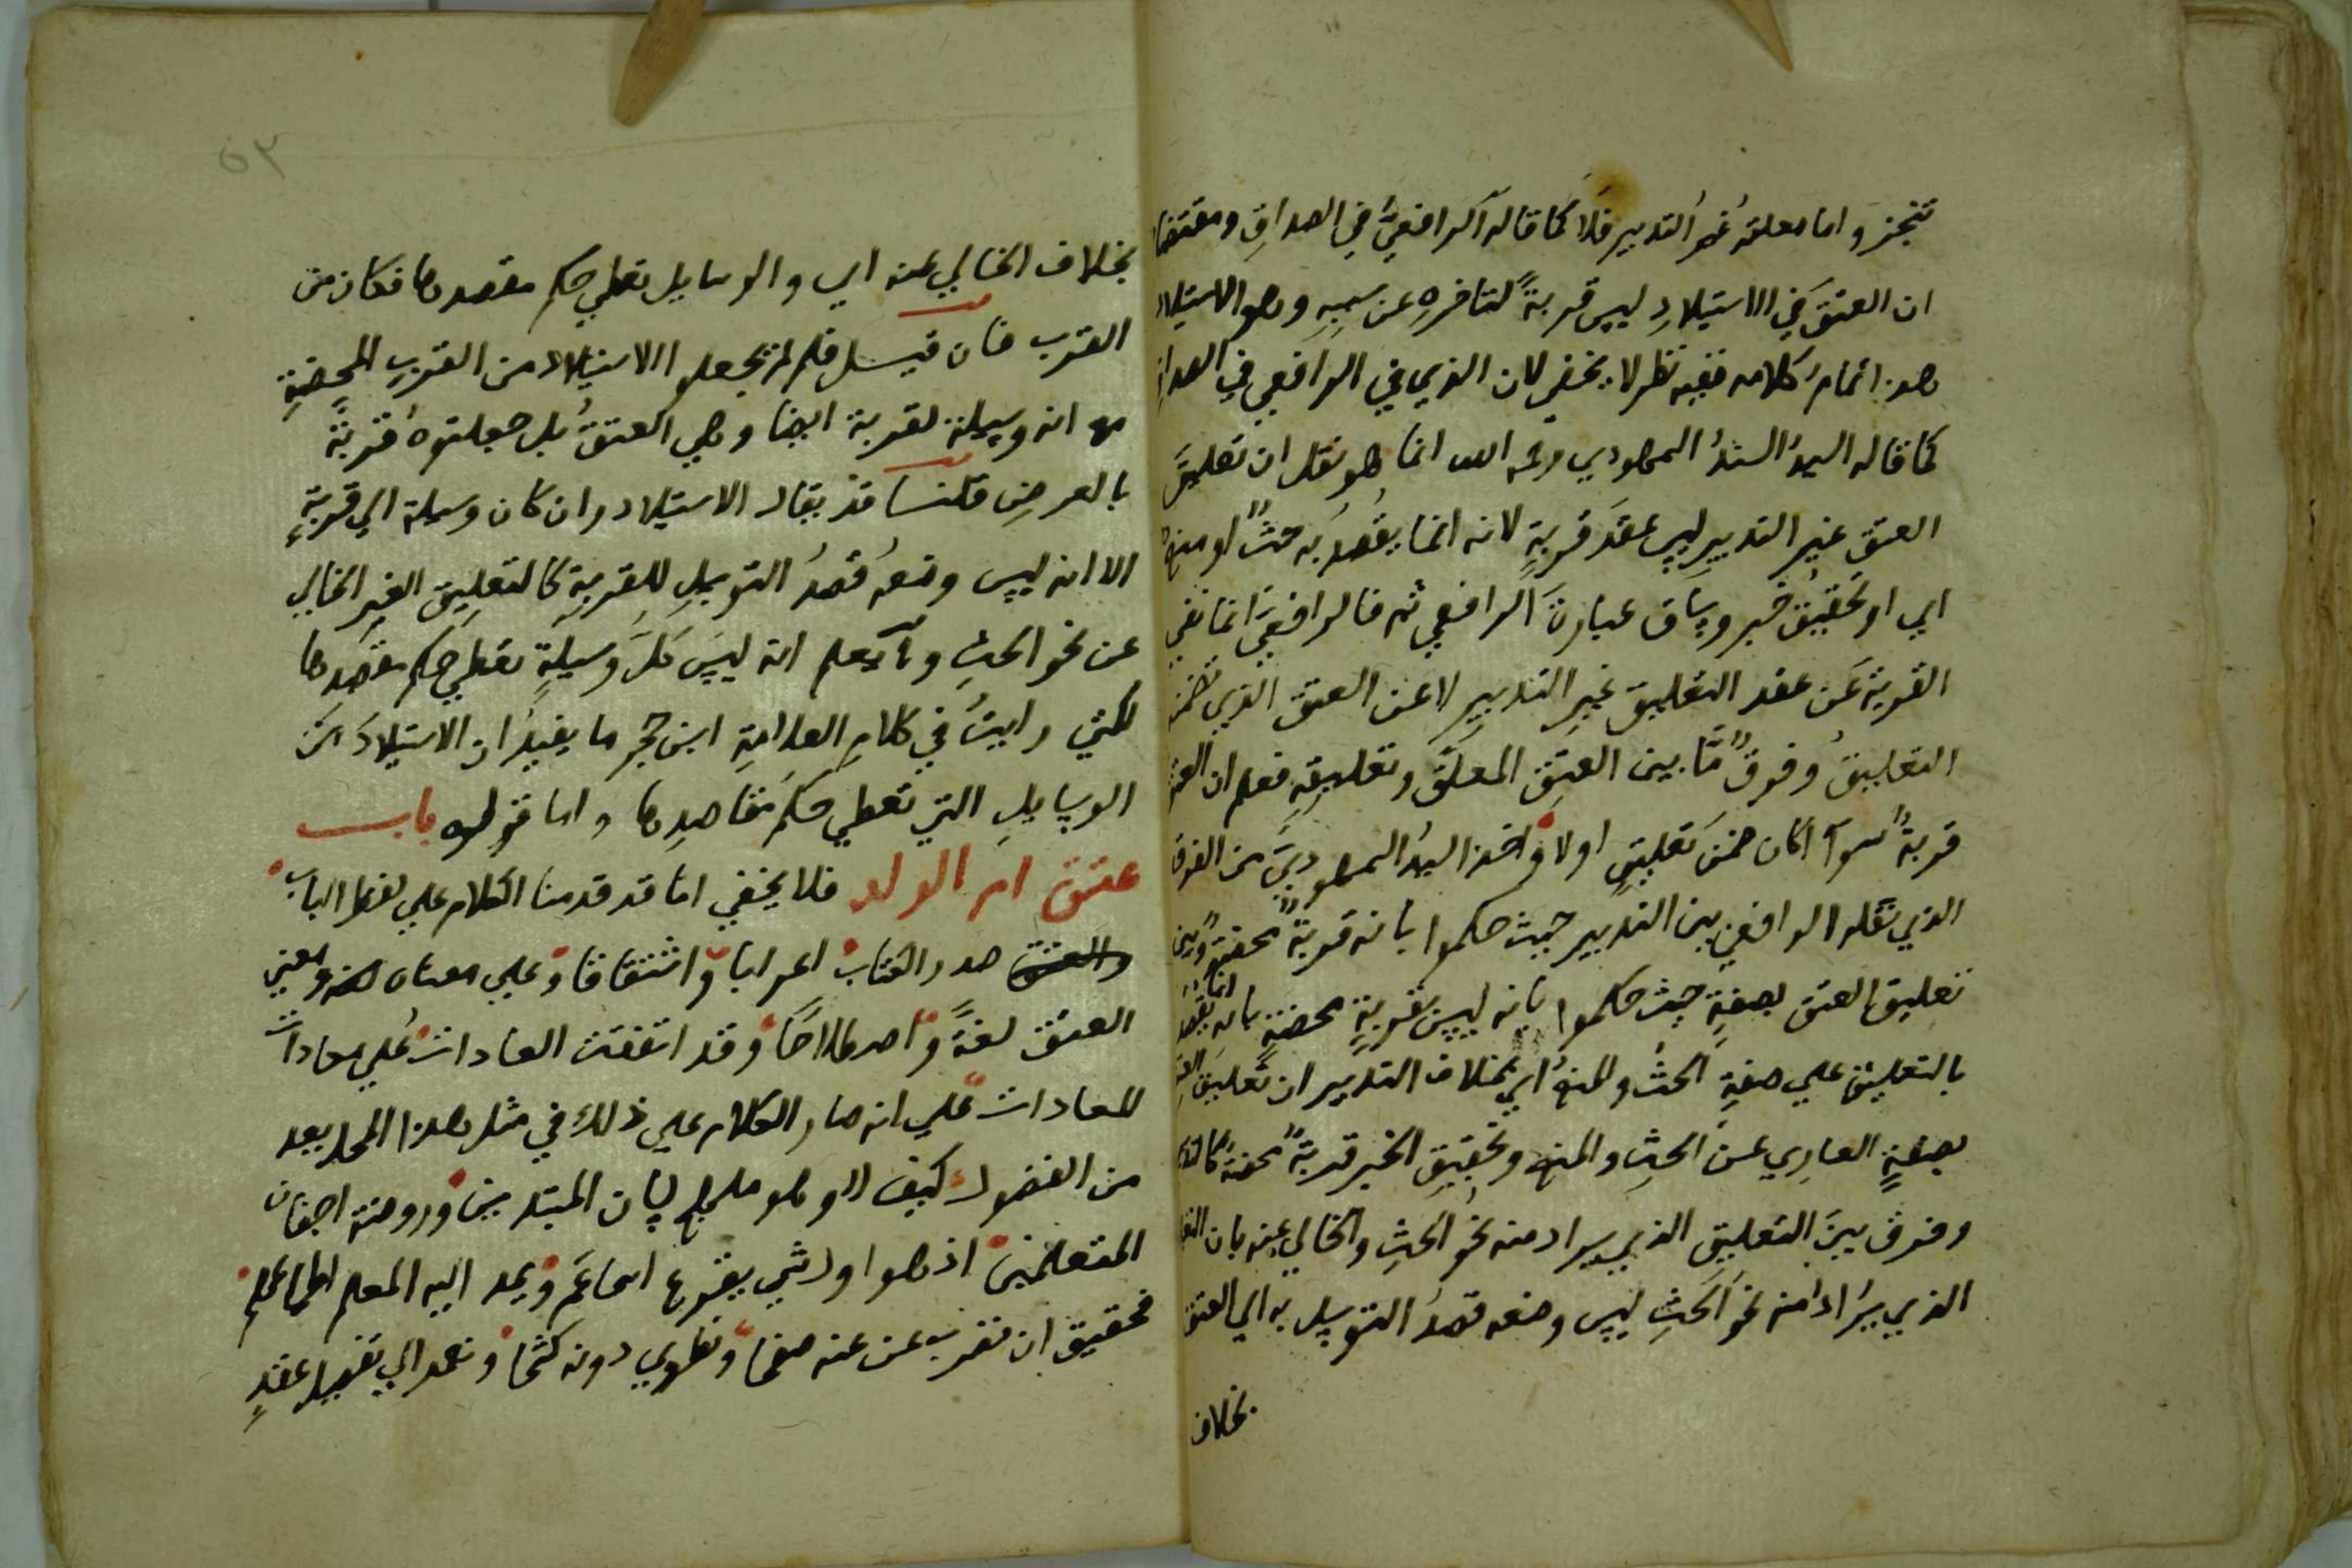 تنجز واما معلقه غير التدبير فلا كما قاله الرافعي في الصداق ومقتضا
ان العتق في الاستيلاد ليس قربة لتاخره عن سببه وهو الاستيلاد
هذا تمام كلامه ففيه نظر لا يخفي لان الذي في الرافعي في الصداق
كما قاله السيد السند السمهودي رحمه الله انما هو نقل ان تعليق
العتق غير التدبير ليس عقد قربة لانه انما يقصد به حث او منع
اي او تحقيق خبر وساق عبارة الرافعي ثم قال فالرافعي انما نفي
القربة عن عقد التعليق غير التدبير لا عن العتق الذي تضمنه
التعليق وفرق ما بين العتق المعلق وتعليقه فعلم ان العتق
قربة سوآ اكان ضمن تعليق اولا واخذ السيد السمهودي من الفرق
الذي نقله الرافعي بين التدبير حيث حكموا بانه قربة محضة وبين
تعليق العتق بصفة حيث حكموا بانه ليس بقربة محضة بانه انما يقصد
بالتعليق علي صفة الحث والمنع اي بخلاف التدبير ان تعليق العتق
بصفة العاري عن الحث والمنع وتحقيق الخبر قربة محضة كالتدبير
وفرق بين التعليق الذي يراد منه نحو الحث والخالي عنه بان التعليق
الذي يراد منه نحو الحث ليس وضعه قصد التوسل به الي العتق
بخلاف
٥٣
بخلاف الخالي عنه اي والوسايل تعطي حكم مقاصدها فكان من
القرب فان قيل فلم لم تجعلوا الاستيلاد من القرب المحضة
مع انه وسيلة لقربة ايضا وهي العتق بل جعلتموه قربة
بالعرض قلنا قد يقال الاستيلاد وان كان وسيلة الي قربة
الا انه ليس وضعه قصد التوسل للقربة كالتعليق الغير الخالي
عن نحو الحث وبه يعلم انه ليس كل وسيلة تعطي حكم مقصدها
لكني رايت في كلام العلامة ابن حجر ما يفيد ان الاستيلاد من
الوسايل التي تعطي حكم مقاصدها واما قولهم باب
عتق ام الولد فلا يخفي انا قد قدمنا الكلام علي لفظ الباب
والعتق صدر الكتاب اعرابا واشتقاقا وعلي معناه لغة ومعني
العتق لغة واصطلاحا وقد اتفقت العادات علي معادات
المعادات علي انه صار الكلام علي ذلك في مثل هذا المحل يعد
من الفضول كيف لا وهو ملجلج لسان المبتدين وروضة اجفان
المتعلمين اذ هو اول شي يقرع اسماعهم ويمد اليه المعلم
فحقيق ان نضرب عن عنه صفحا ونطوي دونه كشحا ونعمد الي تفصيل عقد